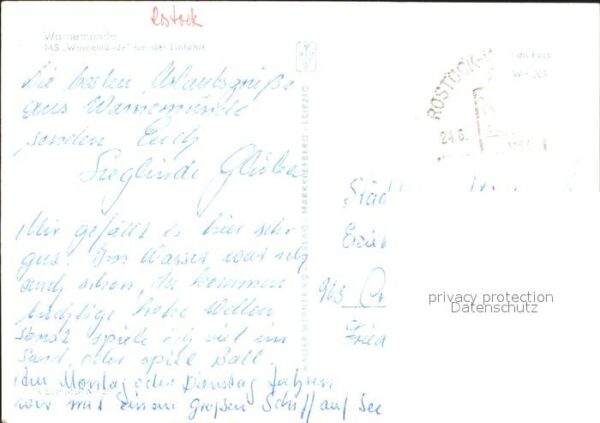 Rostock
Warnemünde
MS „Warnemünde" bei der Einfahrt
Die besten Urlaubsgrüße
aus Warnemünde
senden Euch
Sieglinde
Mir gefällt es hier sehr
gut. Im Wasser war ich
auch schon, da kommen
tüchtige hohe Wellen
sonst spiele ich viel im
Sand, oder spiele Ball.
Am Montag oder Dienstag fahren
wir mit einem Großen Schiff auf See
VERLAG · MARKKLEEBERG · LEIPZIG
ROSTOCK
24.8.
Städt
Erzie
963
privacy protection
Datenschutz